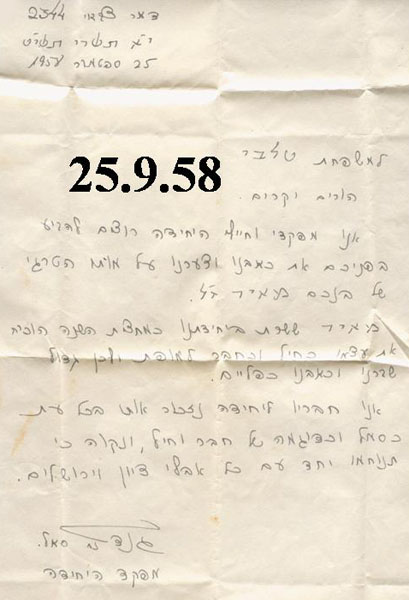 דואר צבאי 2344
י"א תשרי תשי"ט
25 ספטמבר 1958
25.9.58
למשפחת
הורים יקרים.
אנו מפקדי וחיילי היחידה רוצים להביע
בפניכם את כאבנו וצערנו על מותו הטרגי
של בנכם מאיר ז"ל.
מאיר ששרת ביחידתנו כמחצית השנה הוכיח
את עצמו כחייל וכחבר למופת ולכן גדול
שברנו וכאבנו כפליים.
אנו חבריו ליחידה נזכור אותו בכל עת
כסמל וכדוגמה של חבר וחייל, ונקוה כי
תנוחמו יחד עם כל אבלי ציון וירושלים.
סאל.
מפקד היחידה